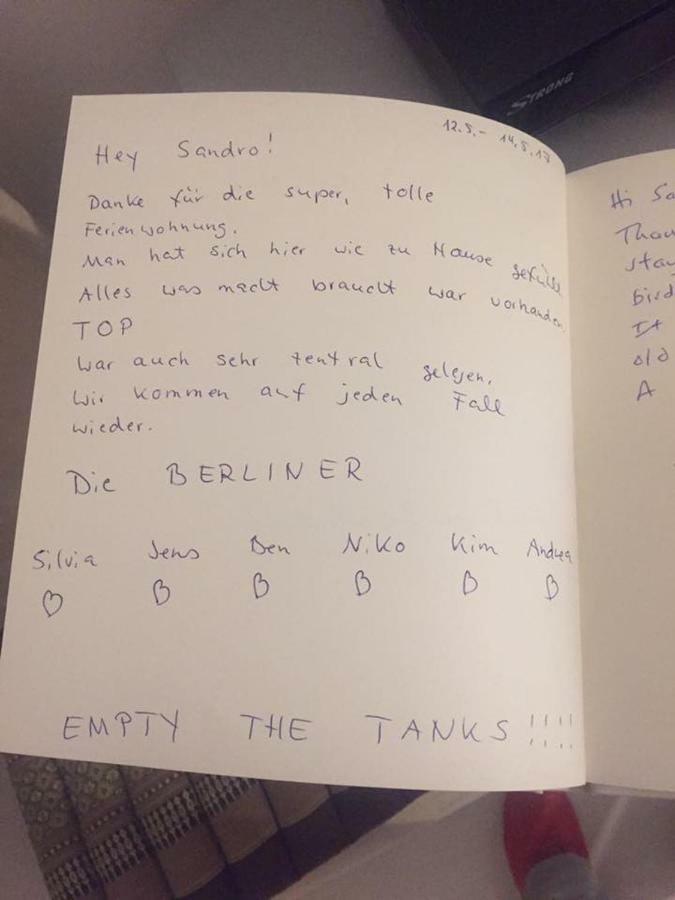 STRONG
12.5.- 14.5.17
Hey Sandro!
Danke für die super, tolle
Ferienwohnung.
Man hat sich hier wie zu Hause gefühlt
Alles was macht braucht war vorhanden.
TOP
War auch sehr zentral gelegen.
Wir kommen auf jeden Fall
wieder.
Die BERLINER
Silvia Jens Ben Niko Kim Andrea
EMPTY THE TANKS !!!!
Hi Sa
Than
stay
bird
It
old
A